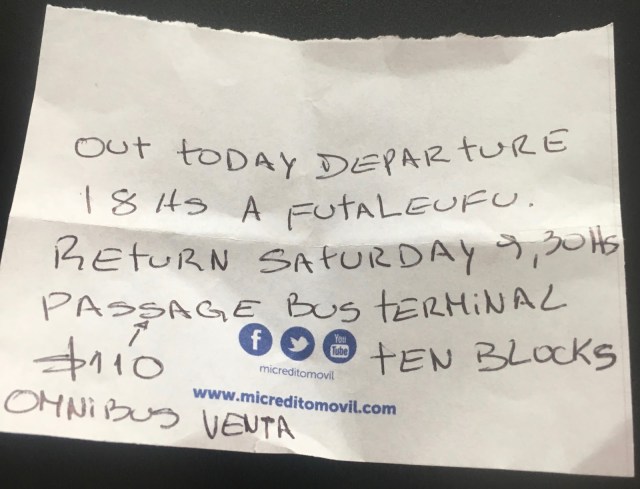 OUT TODAY DEPARTURE
18 HS A FUTALEUFU.
RETURN SATURDAY 9,30HS
PASSAGE BUS TERMINAL
$110 f You Tube TEN BLOCKS
micreditomovil
www.micreditomovil.com
OMNIBUS VENTA